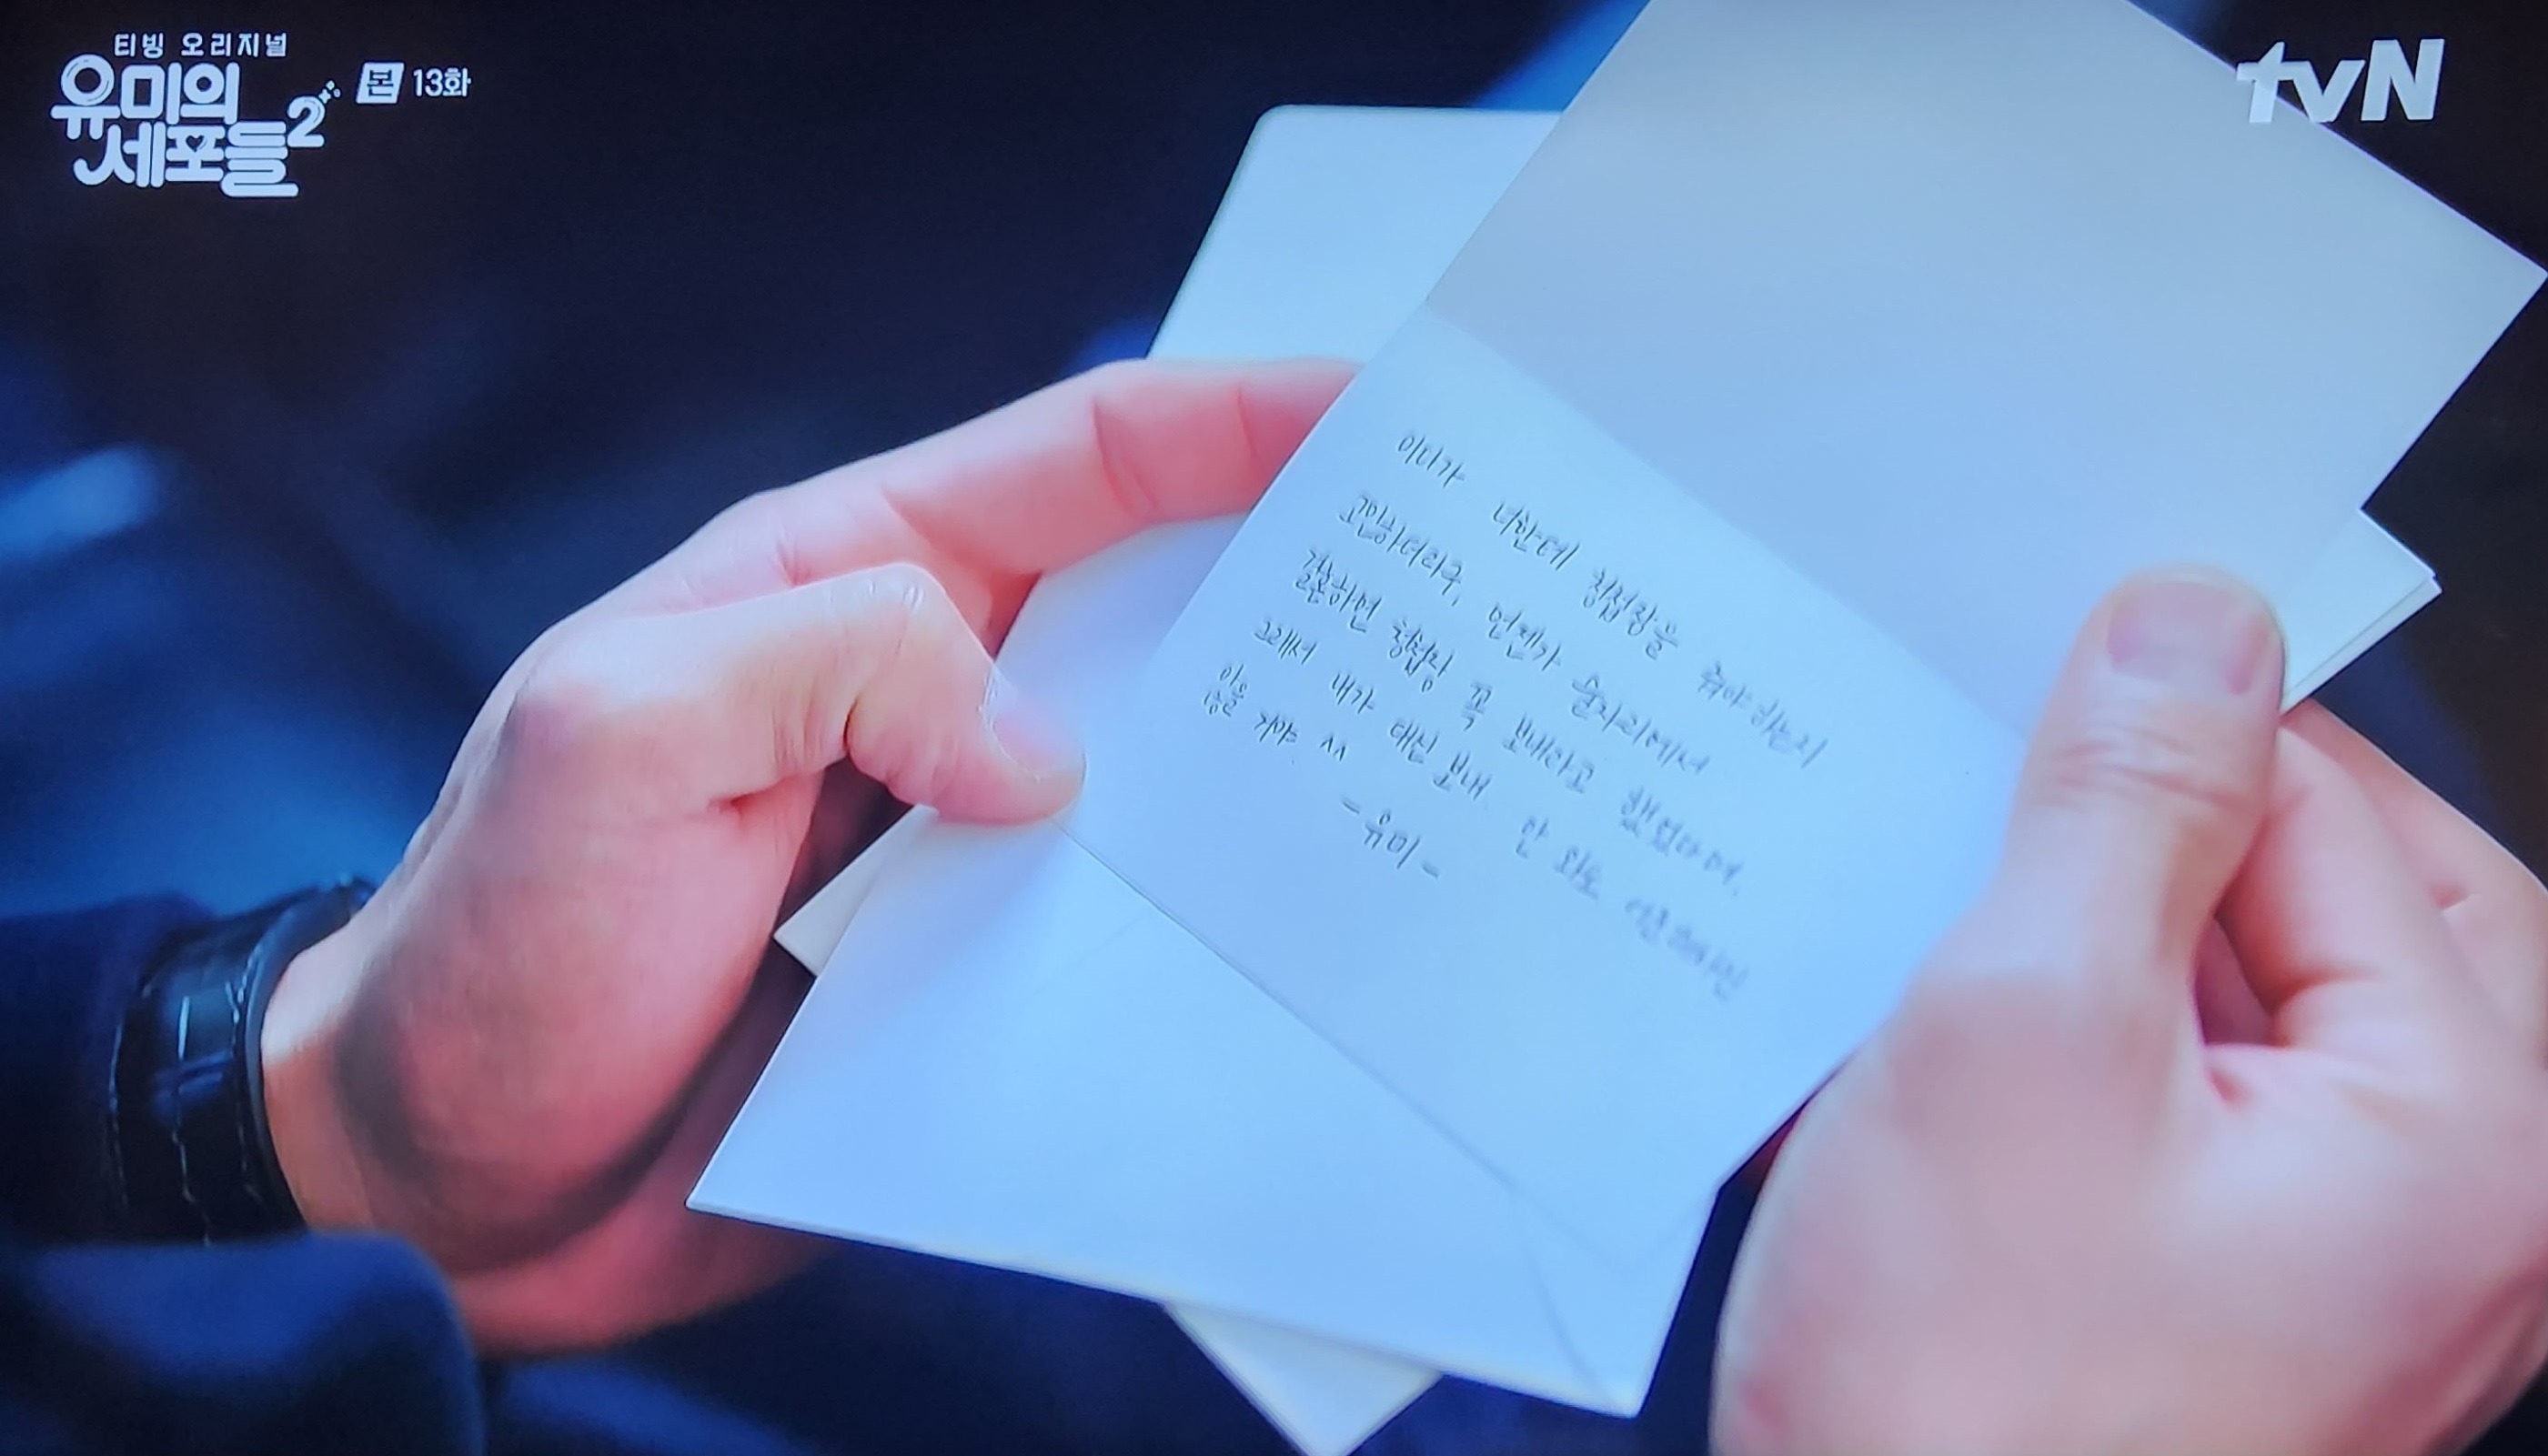 티빙 오리지널
유미의
세포들2
본 13화
tvN
이다가 너한테 청첩장을 줘야 하는지
고민하더라구, 언젠가 술자리에서
결혼하면 청첩장 꼭 보내라고 했었다며.
그래서 내가 대신 보내. 안 와도 이해해
있을 거야 ^^
-유미-